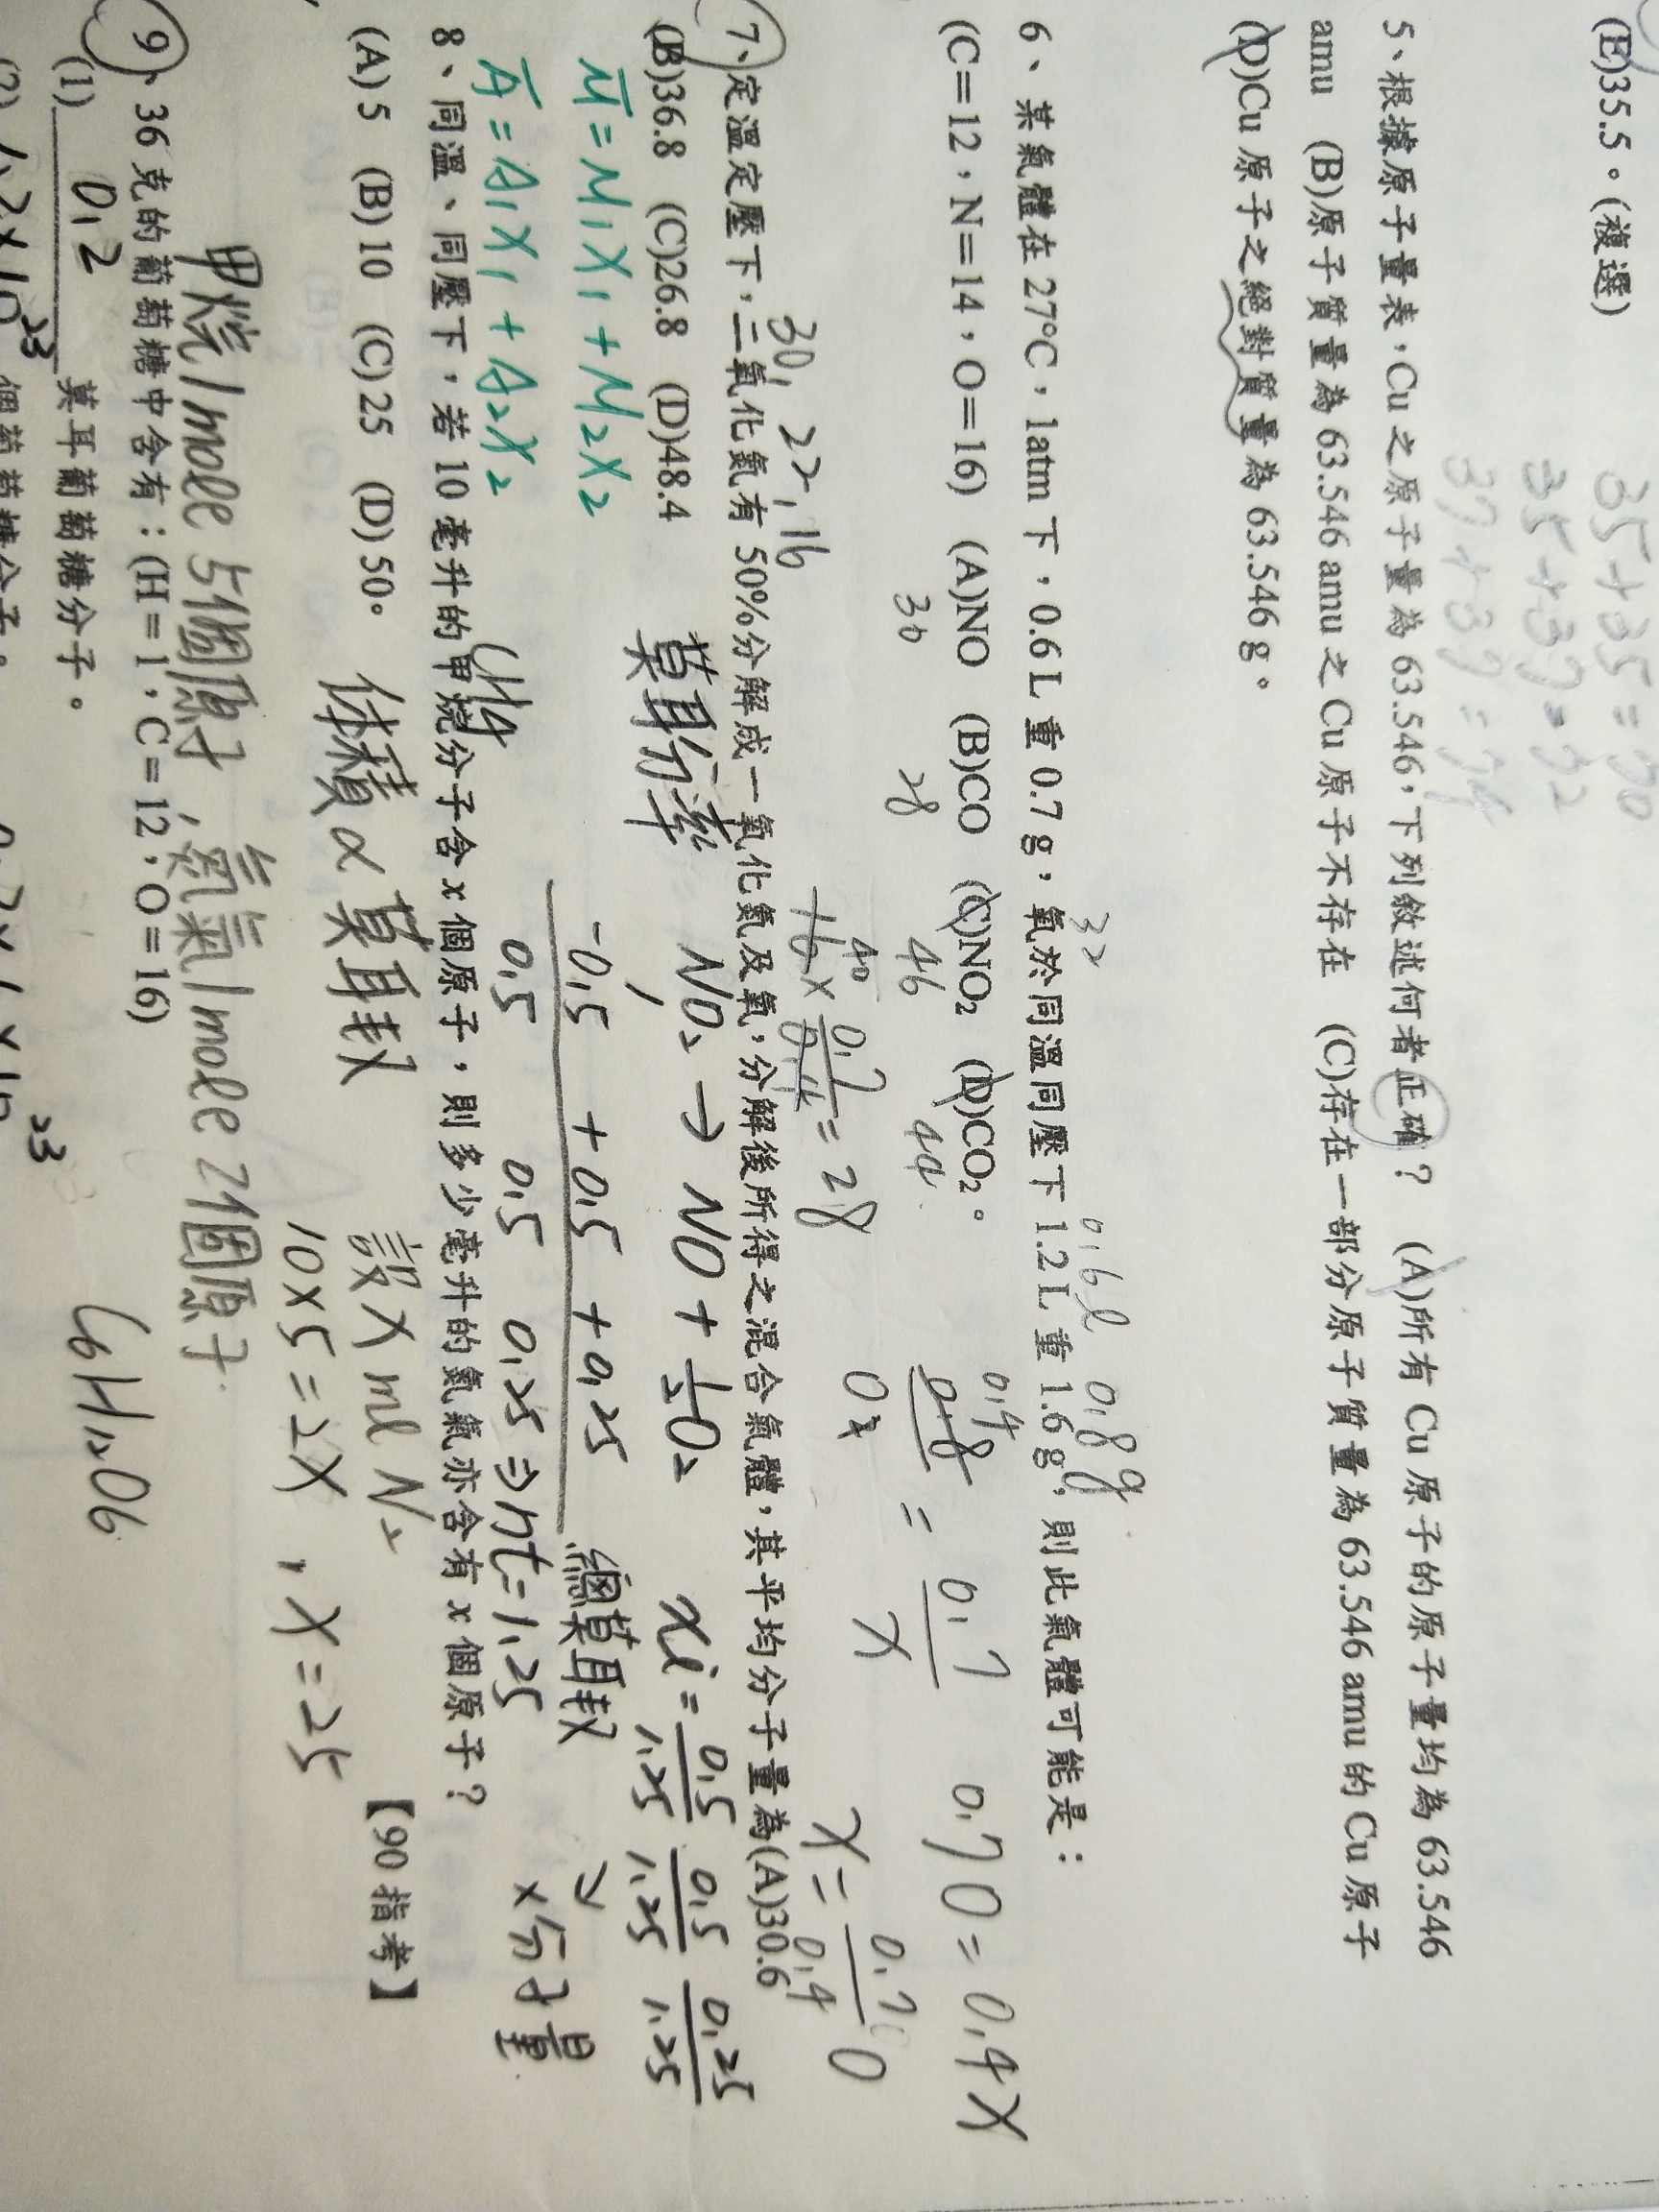 (E)35.5。(複選)
35+35=70
35+37=72
37+37=74
5、根據原子量表,Cu 之原子量為 63.546,下列敘述何者正確? (A)所有 Cu 原子的原子量均為 63.546
amu (B)原子質量為 63.546 amu 之 Cu 原子不存在 (C)存在一部分原子質量為 63.546 amu 的 Cu 原子
(D)Cu 原子之絕對質量為 63.546 g。
32 0.6l 0.8g
6、某氣體在 27°C,1atm 下,0.6 L 重 0.7 g,氧於同溫同壓下 1.2 L 重 1.6 g,則此氣體可能是:
(C=12,N=14,O=16) (A)NO (B)CO (C)NO₂ (D)CO₂。
30 28 46 44
0.70=0.4X
30, 22, 16
7、定溫定壓下,二氧化氮有 50%分解成一氧化氮及氧,分解後所得之混合氣體,其平均分子量為(A)30.6
(B)36.8 (C)26.8 (D)48.4
莫耳分率 NO₂ → NO + ½O₂
xi = 0.5/1.25 0.5/1.25 0.25/1.25
M̄ = M₁X₁ + M₂X₂
-0.5 +0.5 +0.25
總莫耳數
Ā = A₁X₁ + A₂X₂
0.5 0.5 0.25 ⇒ nt=1.25
×分子量
CH4
8、同溫、同壓下,若 10 毫升的甲烷分子含 x 個原子,則多少毫升的氮氣亦含有 x 個原子?
(A) 5 (B) 10 (C) 25 (D) 50。
【90 指考】
體積 α 莫耳數
設X ml N₂
10×5=2X , X=25
甲烷1mole 5個原子, 氮氣1mole 2個原子
9、36 克的葡萄糖中含有:(H=1,C=12,O=16)
C6H12O6
(1) 0.2 莫耳葡萄糖分子。
(2) 1.2×10²³ 個葡萄糖分子。